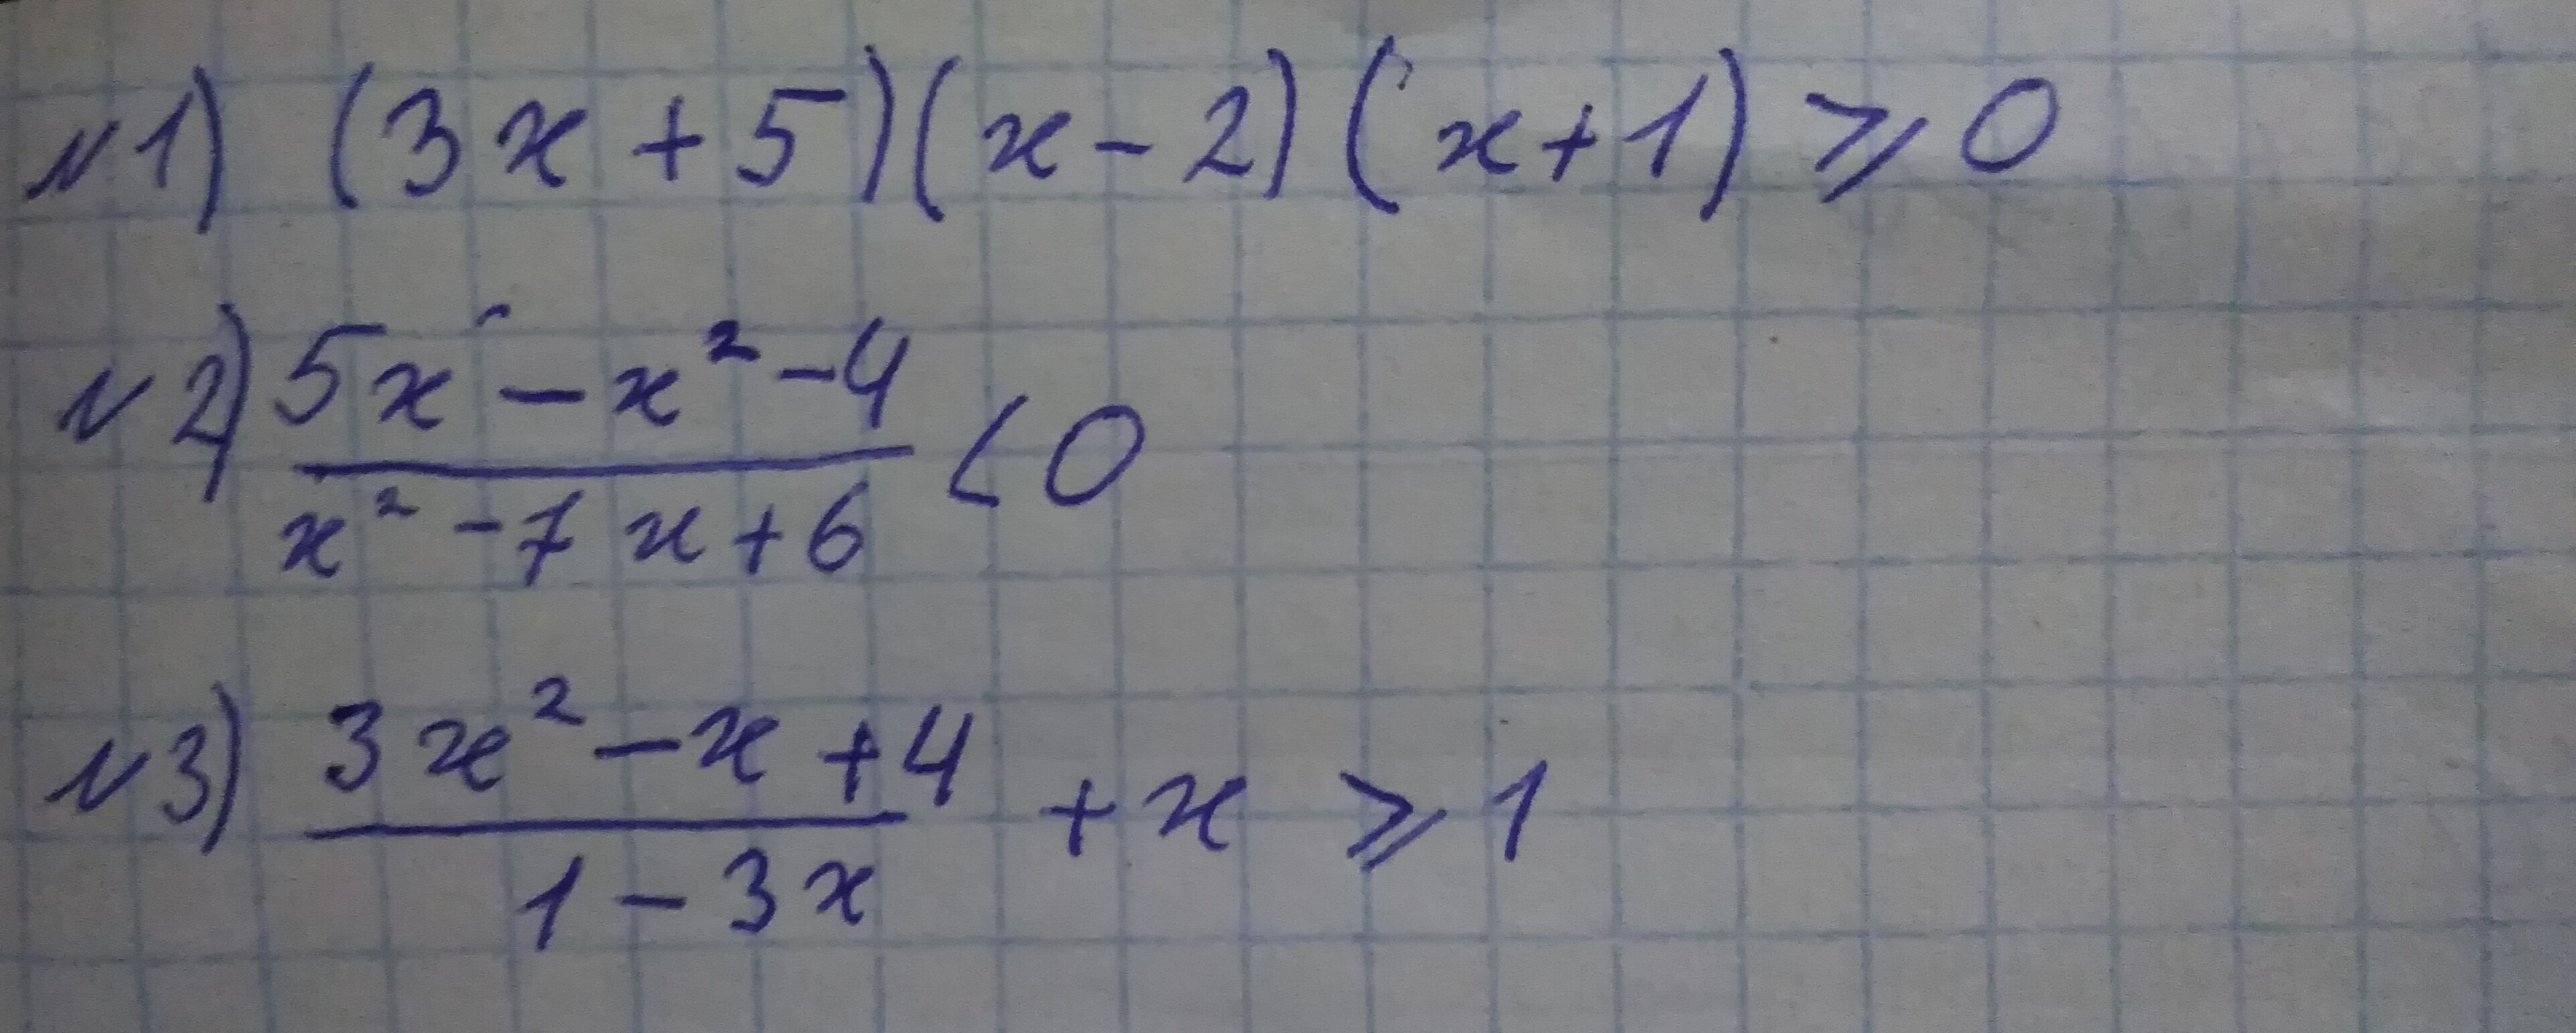 №1) (3x+5)(x-2)(x+1) ⩾ 0
№2) (5x - x² - 4)/(x² - 7x + 6) < 0
№3) (3x² - x + 4)/(1 - 3x) + x ⩾ 1